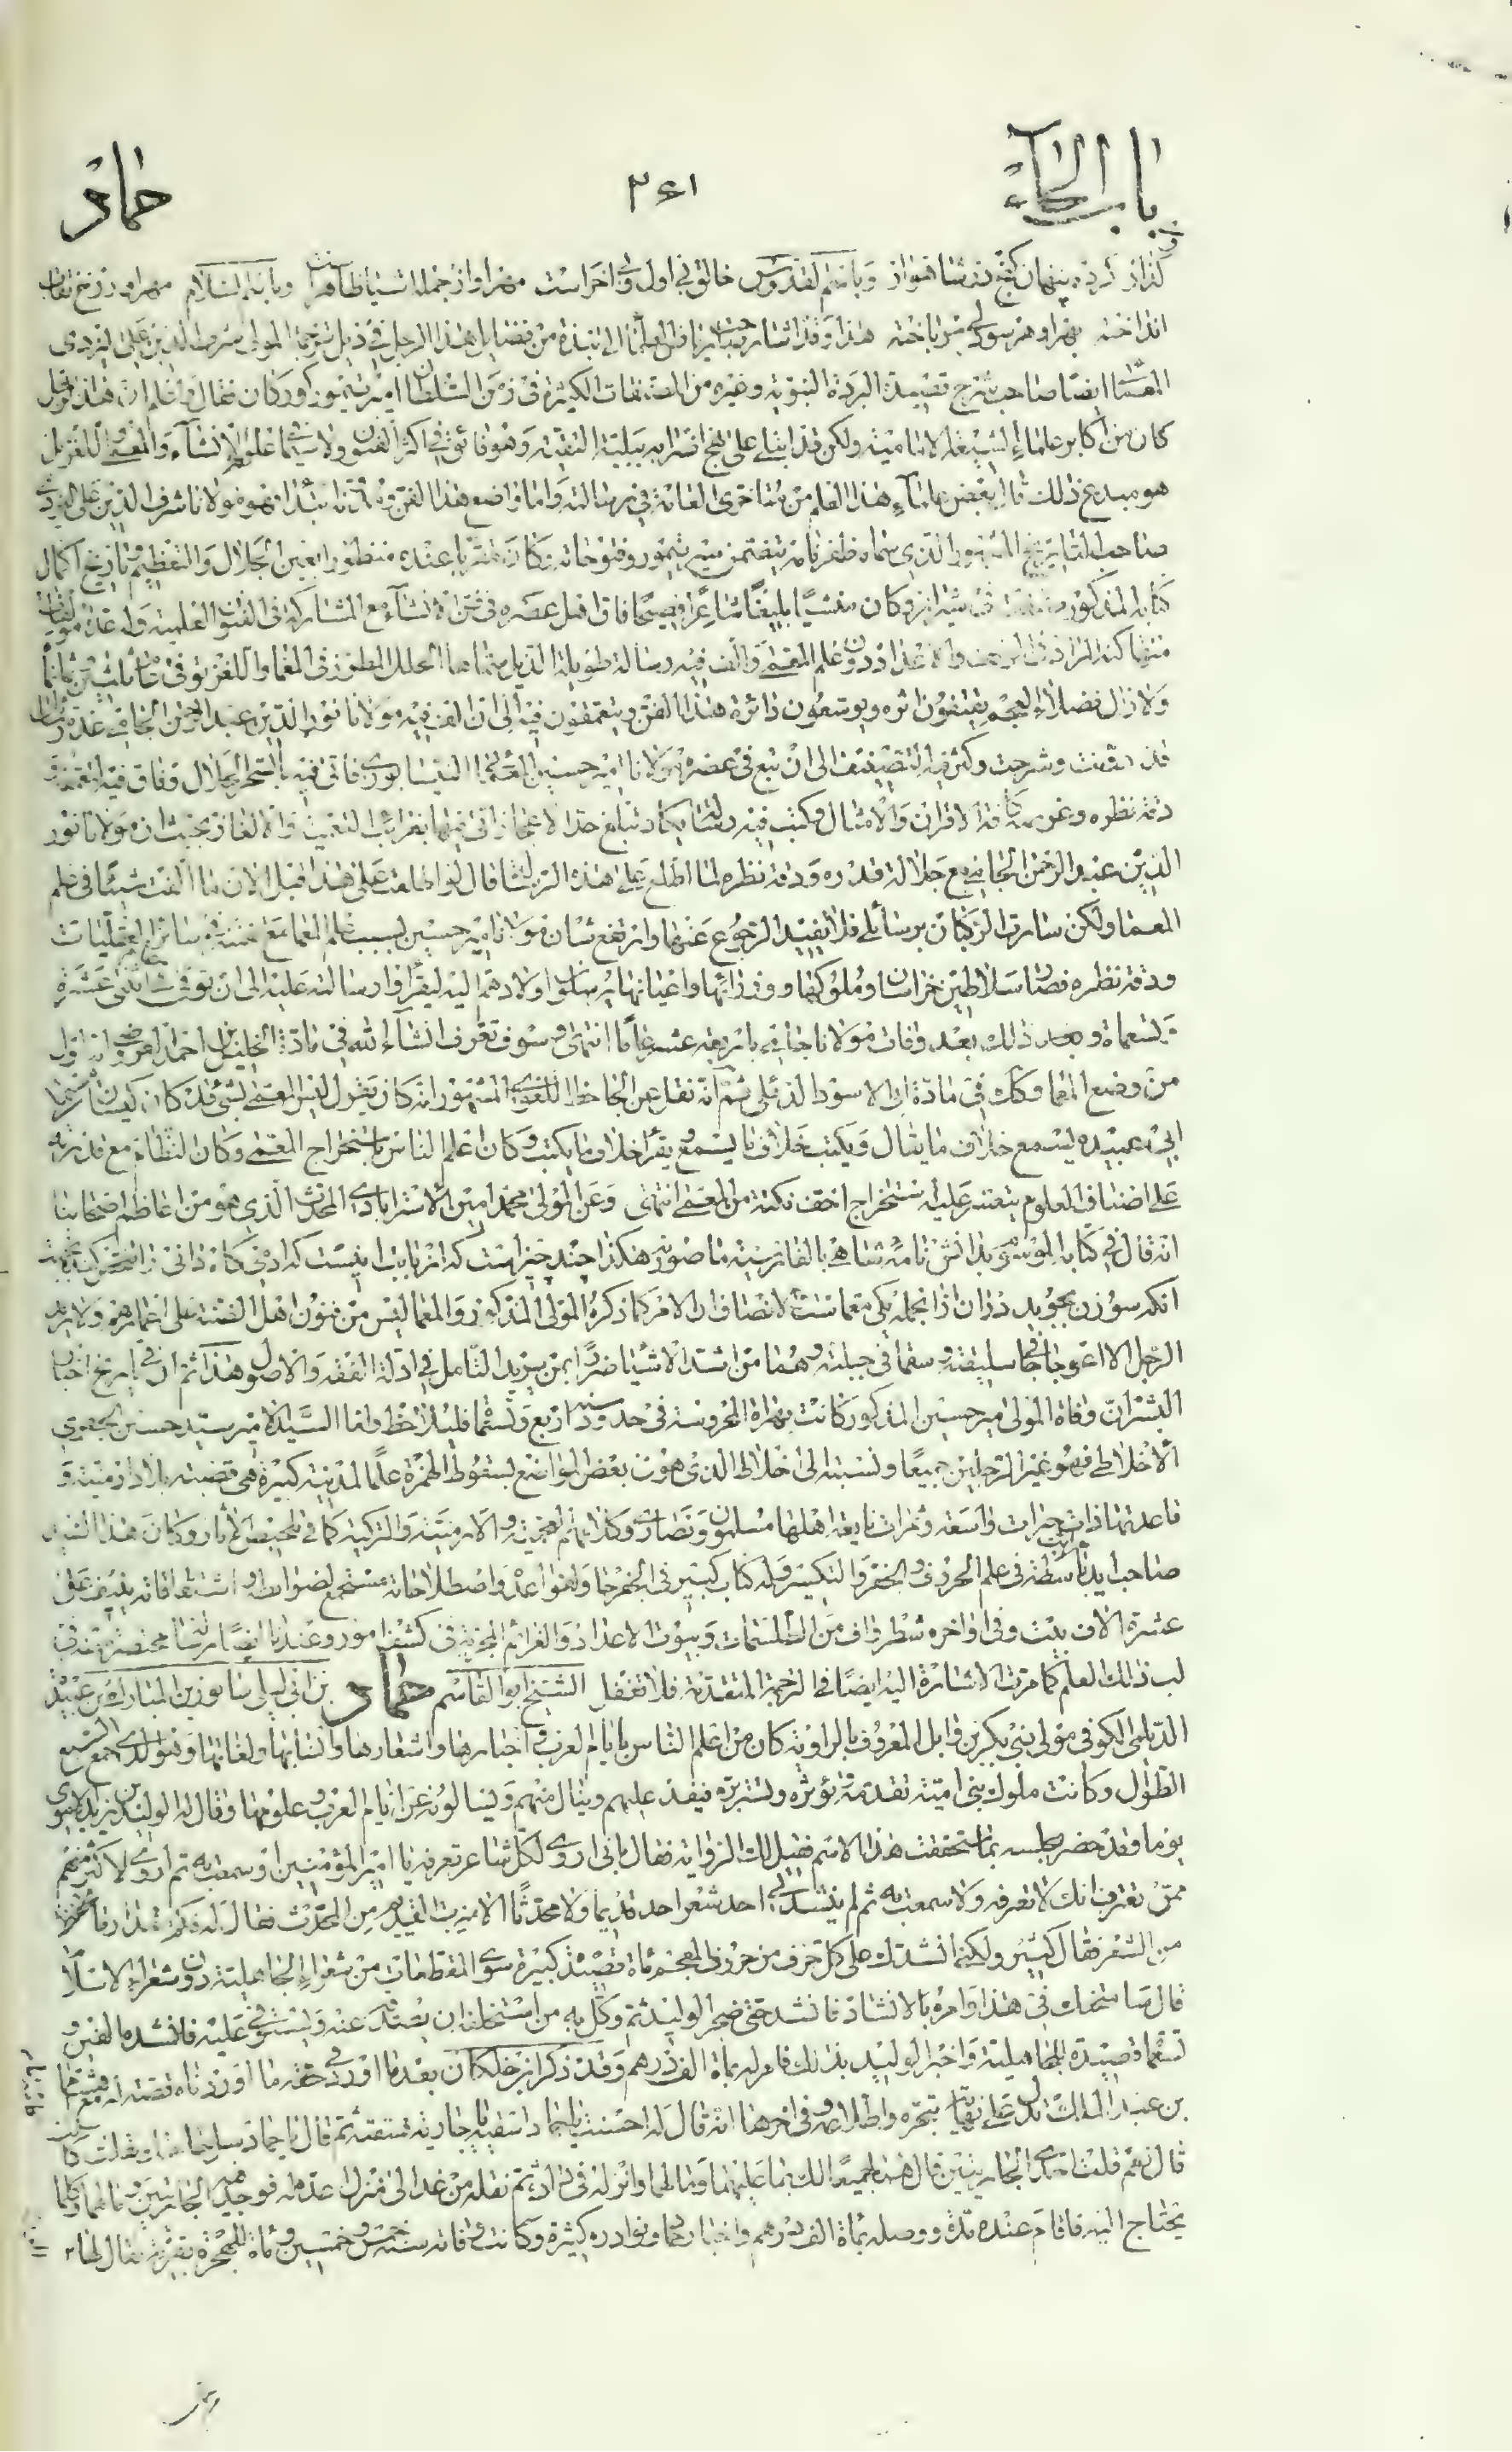 باب الحاء
٢٤١
حماد
كذار كرده پنهان كنج در شاهنواز وباسم القدوس خالق في اول وفي اخر است مهر او از جمله اشيا ظاهر وباسم السلام مهر او زرخ نقاب
انداخته بهر او هر سو سر باخته هذا وقد اشار الى نبذة من فضايل هذا الرجل في ذيل ترجمة المولى شرف الدين علي اليزدي
المعمائي ايضا صاحب شرح قصيدة البردة النبوية وغيره من المصنفات الكثيرة في زمن السلطان امير تيمور كوركان فقال واعلم ان هذا الرجل
كان من اكابر علماء الشيعة الامامية ولكن قد ابتلي على نهج اضرابه ببلية التقية وهو فائق في اكثر الفنون ولا سيما علم الانشاء والمعمى واللغز بل
هو مبدع ذلك قال بعض علماء هذا العلم من متأخري العامة في رسالته واما واضع هذا الفن فهو مولانا شرف الدين علي اليزدي
صاحب التاريخ المشهور الذي سماه ظفرنامه يتضمن سير تيمور وفتوحاته وكان مقربا عنده منظورا بعين الجلال والتعظيم وتاريخ اكمال
كتابه المذكور صنف في شيراز وكان منشيا بليغا شاعرا فصيحا فاق اهل عصره في فن الانشاء مع المشاركة في الفنون العلمية وله عدة مؤلفات
منها كنه المراد في الوفق والاعداد ودون علم المعمى والف فيه رسالة طويلة الذيل سماها الحلل المطرز في المعما واللغز توفي في ثلثين ثمانمأة
ولا زال فضلاء العجم يقتفون اثره ويوسعون دائرة هذا الفن ويتعمقون فيه الى ان الف فيه مولانا نور الدين عبد الرحمن الجامي عدة رسايل
قد دونت وشرحت وكثر فيه التصنيف الى ان نبغ في عصره مولانا امير حسين المعمائي النيسابوري فاتى فيه بالسحر الحلال وفاق فيه لتعمقه و
دقة نظره وغوره كافة الاقران والامثال وكتب فيه رسالة تكاد تبلغ حد الاعجاز اتى فيها بغرائب التعمية والالغاز بحيث ان مولانا نور
الدين عبد الرحمن الجامي مع جلالة قدره ودقة نظره لما اطلع على هذه الرسالة قال لو اطلعت على هذا قبل الان ما الفت شيئا في علم
المعما ولكن سارت الركبان برسائلي فلا يفيد الرجوع عنها وارتفع شان مولانا امير حسين لسبب علم المعما مع تفننه في سائر العقليات
ودقة نظره فصار سلاطين خراسان وملوكها ووزرائها واعيانها يرسلون اولادهم اليه ليقرأوا رسالته عليه الى ان توفي اثنتي عشرة
وتسعمأة وبعد ذلك بعد وفات مولانا جامي باربعة عشر عاما انتهى وسوف تعرف انشاء الله في مادة الخليل بن احمد العروضي انه اول
من وضع المعما وكك في مادة ابي الاسود الدئلي ثم انه نقل عن الجاحظ اللغوي المشهور انه كان يقول ليس المعمى بشيء قد كان كيسان
ابي عبيده يسمع خلاف ما يقال ويكتب خلاف ما يسمع ويقرأ خلاف ما يكتب وكان اعلم الناس باستخراج المعمى وكان النظام مع قدرته
على اصناف العلوم يتعسر عليه استخراج اخف نكتة من المعمى انتهى وعن المولى محمد امين الاسترابادي المحدث الذي هو من اعاظم اصحابنا
انه قال في كتابه الموسوم بدانش نامه شاهي بالفارسية ما صورته هكذا چند چيز است كه از بابت اينست كه ادمي كاه داني را
انكه سوزن بجويد دران ازانجمله يكي معماست لانصاف ان الامر كما ذكره المولى المذكور والمعما ليس من فنون اهل الفضنة على اغمارهم ولا يزيد
الرجل الا اعوجاجا في سليقته وسقما في جبلته وهما من اشد الاشياء ضررا بمن يريد التأمل في ادلة الفقه والاصول هذا ثم ان في تاريخ اخبار
البشر ان وفاة المولى مير حسين المذكور كانت بهراة المحروسة في حدود سنة اربع وتسعمأة فليلاحظ واما السيد الامير سيد حسين الجفري
الاخلاطي فهو غير الرجلين جميعا ونسبته الى خلاط الذي هو في بعض المواضع بسقوط الهمزة علما لمدينة كبيرة هي قصبة بلاد ارمينية و
قاعدتها ذات خيرات واسعة وثمرات يانعة اهلها مسلمون ونصارى وكلامهم العجمية والارمنية والتركية كما في تلخيص الاثار وكان هذا السيد
صاحب يد باسطة في علم الحروف والجفر والتكسير وله كتاب كبير في الجفر جامع لقواعده واصطلاحاته مستجمع لضوابطه واستنطاقاته يبلغ
عشرة الاف بيت وفي اواخره شطر واف من الطلسمات وبيوت الاعداد والعزائم المجربة في كشف امور وعندنا ايضا رسالة مختصرة في
لب ذلك العلم كما مرت الاشارة اليه ايضا في الترجمة المتقدمة فلا تغفل الشيخ ابو القاسم حماد بن ابي ليلى سابور بن المبارك بن عبيد
الديلمي الكوفي مولى بني بكر بن وايل المعروف بالراوية كان من اعلم الناس بايام العرب واخبارها واشعارها وانسابها ولغاتها وهو الذي جمع السبع
الطول وكانت ملوك بني امية تقدمه وتؤثره وتستبره فيفد عليهم وينال منهم ويسألونه عن ايام العرب وعلومها وقال له الوليد بن يزيد الاموي
يوما وقد حضر مجلسه بما استحققت هذا الاسم فقيل لك الراوية فقال باني اروي لكل شاعر تعرفه يا امير المؤمنين او سمعت به ثم اروي لاكثر منهم
ممن تعترف انك لا تعرفه ولا سمعت به ثم لم ينشدني احد شعرا حد قديما ولا محدثا الا ميزت القديم من المحدث فقال له فكم مقدار ما تحفظ
من الشعر فقال كثير ولكنه انشدك على كل حرف من حروف المعجم مأة قصيدة كبيرة سوى المقطعات من شعراء الجاهلية دون شعراء الاسلام
قال سامتحنك في هذا وامره بالانشاد فانشد حتى ضجر الوليد ثم وكل به من استحلفه ان يصدقه عنه ويستوفي عليه فانشده الفين و
تسعمأة قصيدة للجاهلية واخبر الوليد بذلك فامر له بمأة الف درهم وقد ذكر ابن خلكان بعد ما اورد في حقه ما اوردناه قصة له مع هشام
بن عبد الملك تدل على تبحره واطلاعه وفي اخرها انه قال له احسنت يا حماد اسقيه يا جارية فسقته ثم قال يا حماد سل حاجتك فقلت كائنة ما كانت
قال نعم قلت احدى الجاريتين قال هما جميعا لك بما عليهما وما لهما وانزله في داره ثم نقله من غد الى منزل اعده له فوجد فيه الجاريتين وما لهما وكلما
يحتاج اليه فاقام عنده مدة ووصله بمأة الف درهم واخبار حماد ونوادره كثيرة وكانت وفاته سنة خمس وخمسين ومأة للهجرة